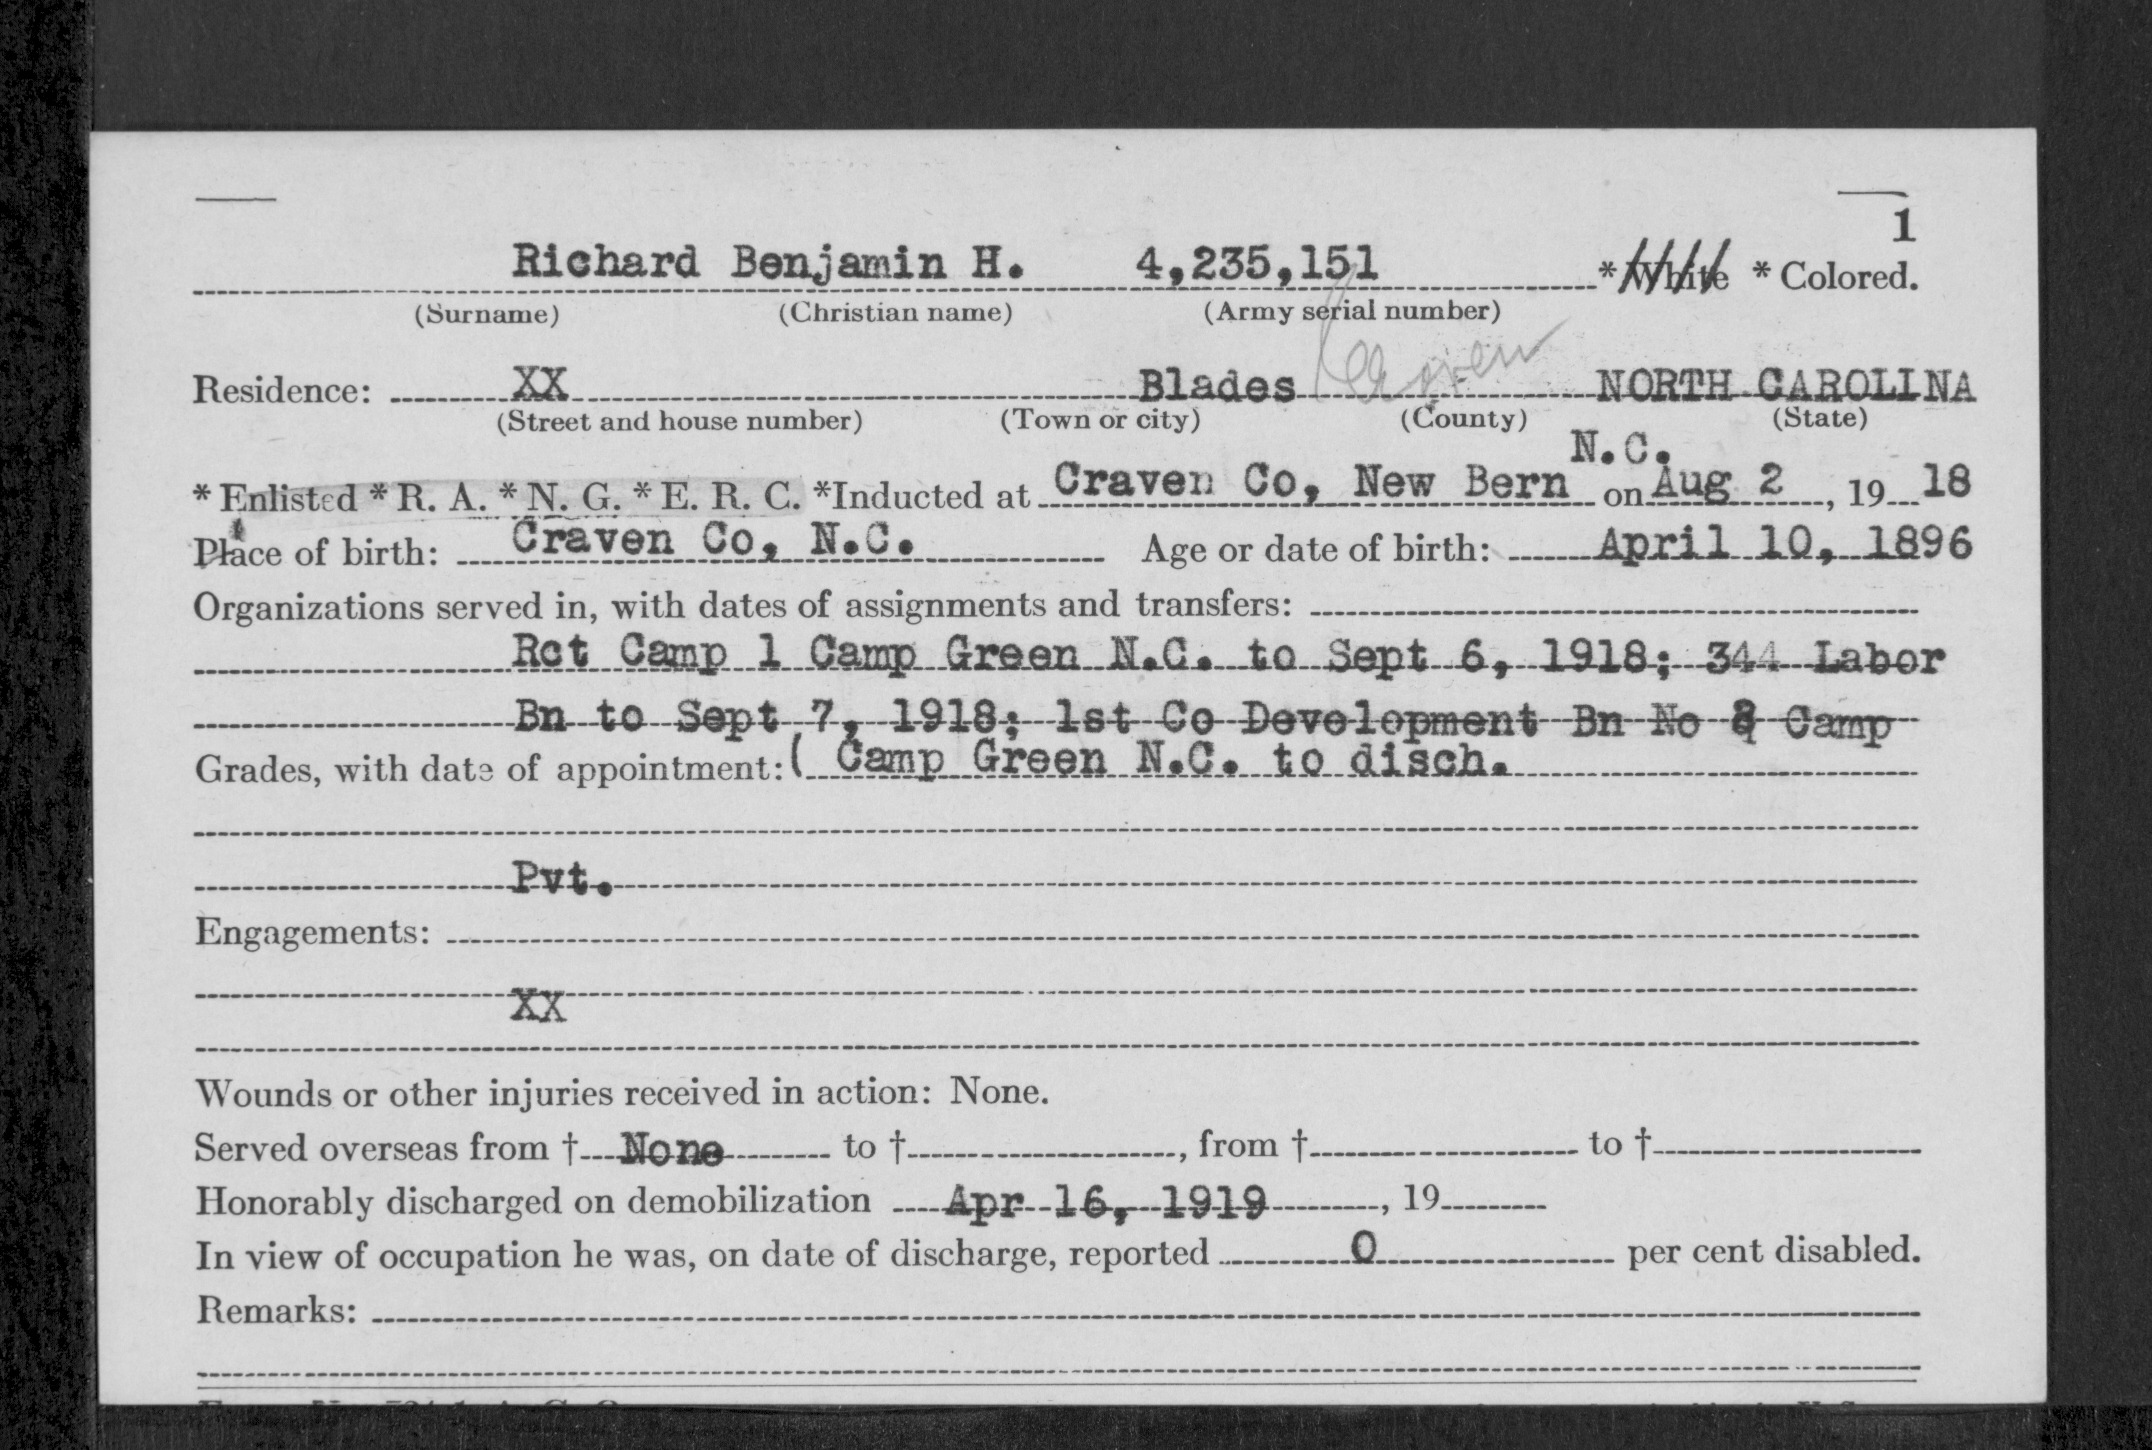 1
Richard Benjamin H. 4,235,151 * White * Colored.
(Surname) (Christian name) (Army serial number)
Residence: XX Blades Craven NORTH CAROLINA
(Street and house number) (Town or city) (County) (State)
N.C.
* Enlisted * R. A. * N. G. * E. R. C. *Inducted at Craven Co, New Bern on Aug 2, 19 18
Place of birth: Craven Co, N.C. Age or date of birth: April 10, 1896
Organizations served in, with dates of assignments and transfers:
Rct Camp 1 Camp Green N.C. to Sept 6, 1918; 344 Labor
Bn to Sept 7, 1918; 1st Co Development Bn No Camp
Grades, with date of appointment: ( Camp Green N.C. to disch.
Pvt.
Engagements:
XX
Wounds or other injuries received in action: None.
Served overseas from † None to †, from † to †
Honorably discharged on demobilization Apr 16, 1919, 19
In view of occupation he was, on date of discharge, reported 0 per cent disabled.
Remarks: